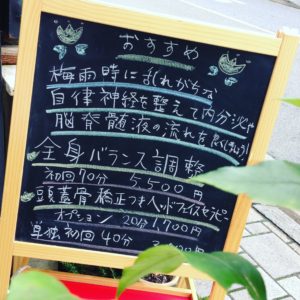 おすすめ
梅雨時に乱れがちな
自律神経を整えて内分泌や
脳脊髄液の流れを良くしましょう!
全身バランス調整
初回70分 5,500円
頭蓋骨矯正つきヘッドフェイスセラピー
オプション 20分1,700円
単独初回40分